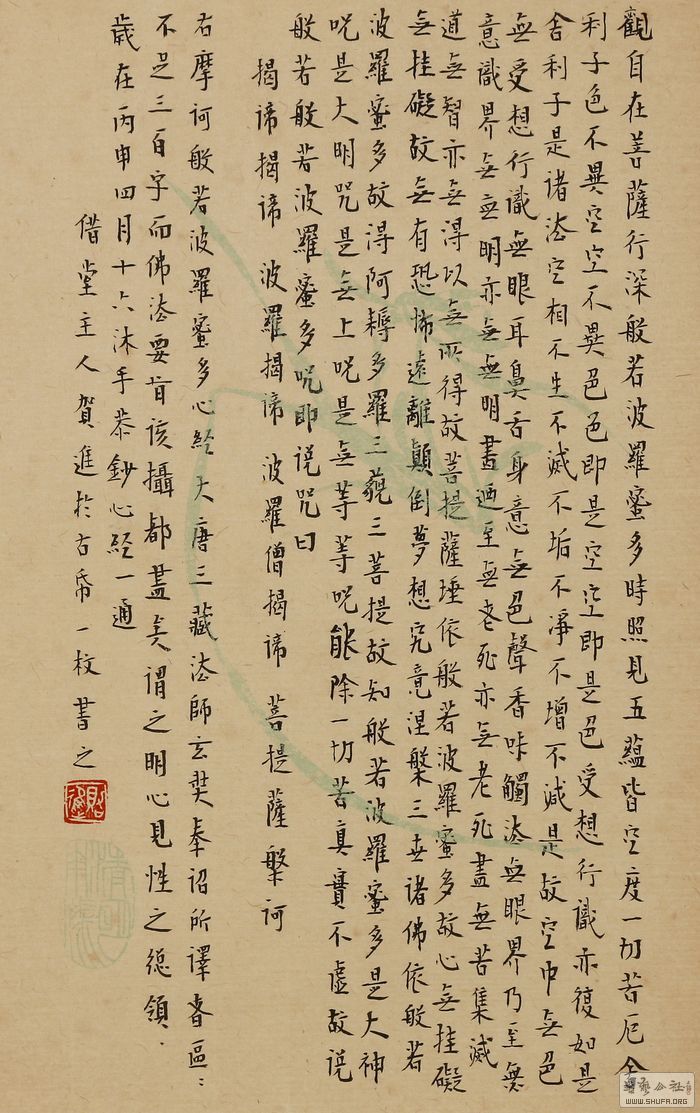 觀自在菩薩行深般若波羅蜜多時照見五蘊皆空度一切苦厄舍
利子色不異空空不異色色即是空空即是色受想行識亦復如是
舍利子是諸法空相不生不滅不垢不淨不增不減是故空中無色
無受想行識無眼耳鼻舌身意無色聲香味觸法無眼界乃至無
意識界無無明亦無無明盡迺至無老死亦無老死盡無苦集滅
道無智亦無得以無所得故菩提薩埵依般若波羅蜜多故心無挂礙
無挂礙故無有恐怖遠離顛倒夢想究竟涅槃三世諸佛依般若
波羅蜜多故得阿耨多羅三藐三菩提故知般若波羅蜜多是大神
呪是大明呪是無上呪是無等等呪能除一切苦真實不虛故說
般若般若波羅蜜多呪即說呪曰
揭諦揭諦 波羅揭諦 波羅僧揭諦 菩提薩槃訶
右摩訶般若波羅蜜多心經大唐三藏法師玄奘奉詔所譯者區〻
不足三百字而佛法要旨該攝都盡矣謂之明心見性之總領.
歲在丙申四月十六沐手恭鈔心經一通
借堂主人賀進於古帋一枚書之
書藝公社
WWW.SHUFA.ORG